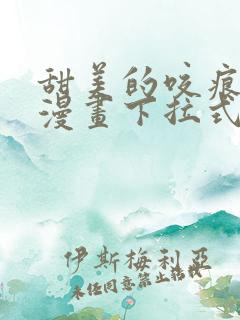 甜美的咬痕
漫畫下拉式
伊斯梅利亞
未经同意禁止转载